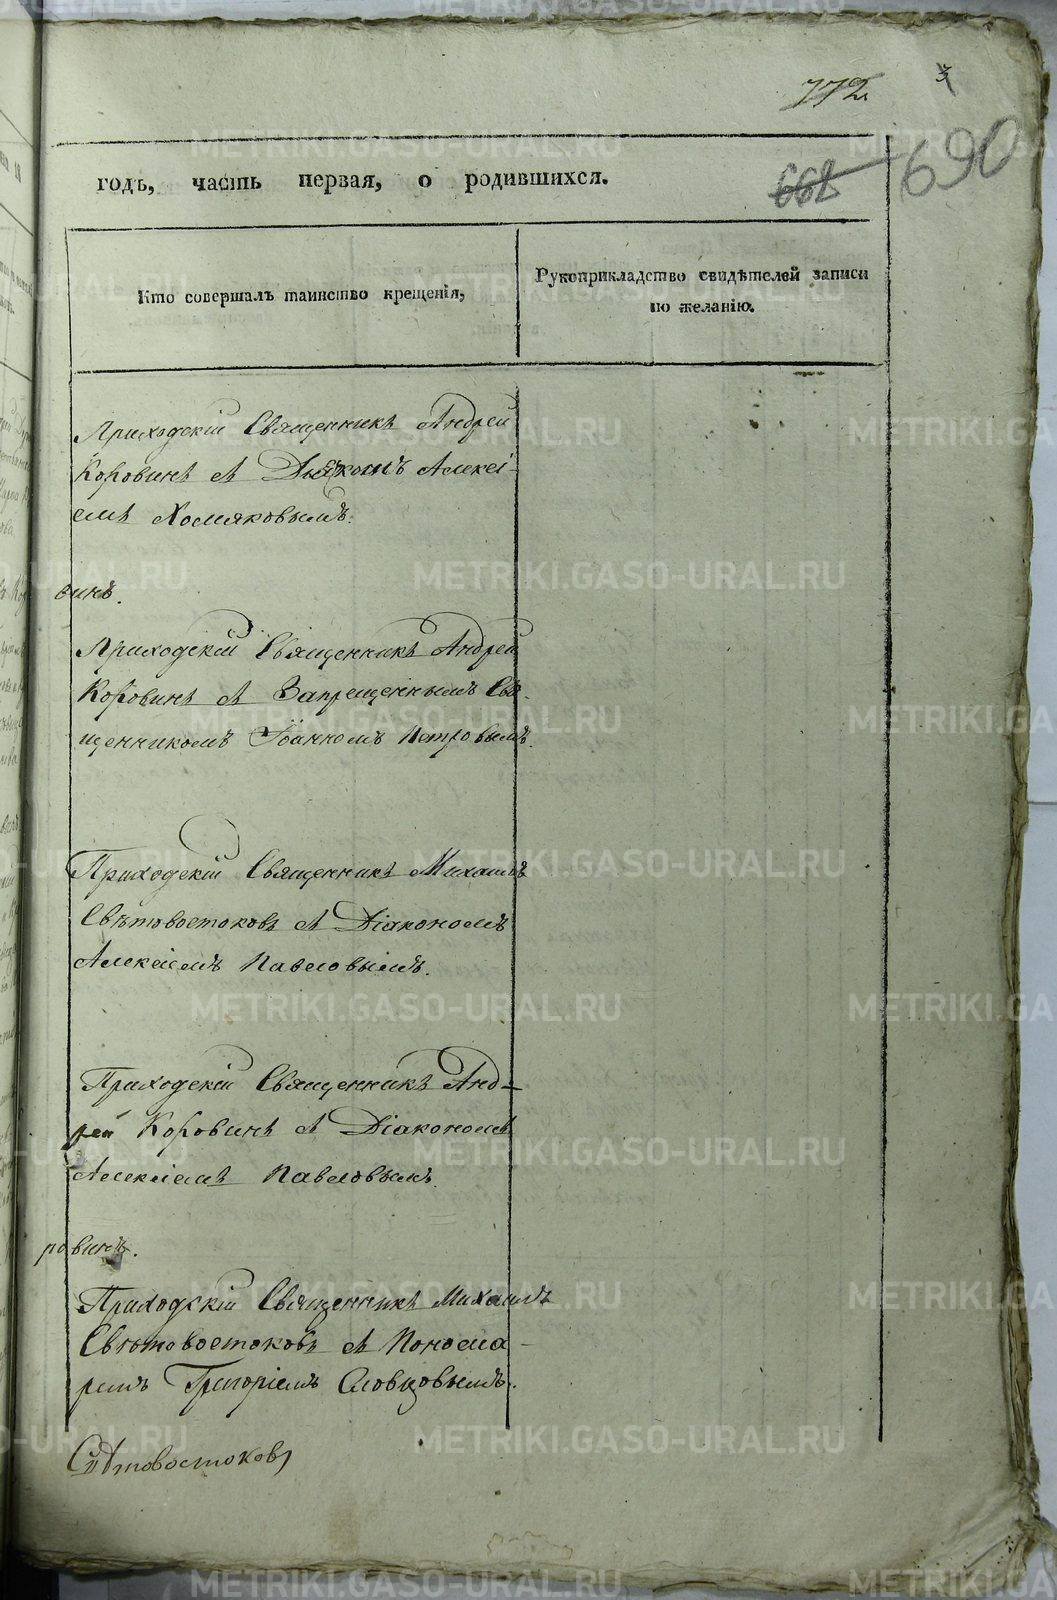 772
3
690
662
годъ, часть первая, о родившихся.
Кто совершалъ таинство крещенія,
Рукоприкладство свидѣтелей записи
по желанію.
Приходскій Священникъ Андрей
Коровинъ съ Дьякономъ Алексі-
емъ Хомяковымъ.
винъ.
Приходскій Священникъ Андрей
Коровинъ съ Запрещеннымъ Свя-
щенникомъ Іоанномъ Петровымъ.
Приходскій Священникъ Михаилъ
Свѣтовостоковъ съ Діакономъ
Алексіемъ Павловымъ.
Приходскій Священникъ Анд-
рей Коровинъ съ Діакономъ
Алексіемъ Павловымъ.
ровинъ.
Приходскій Священникъ Михаилъ
Свѣтовостоковъ съ Понома-
ремъ Григоріемъ Словцовымъ.
Свѣтовостоковъ
METRIKI.GASO-URAL.RU